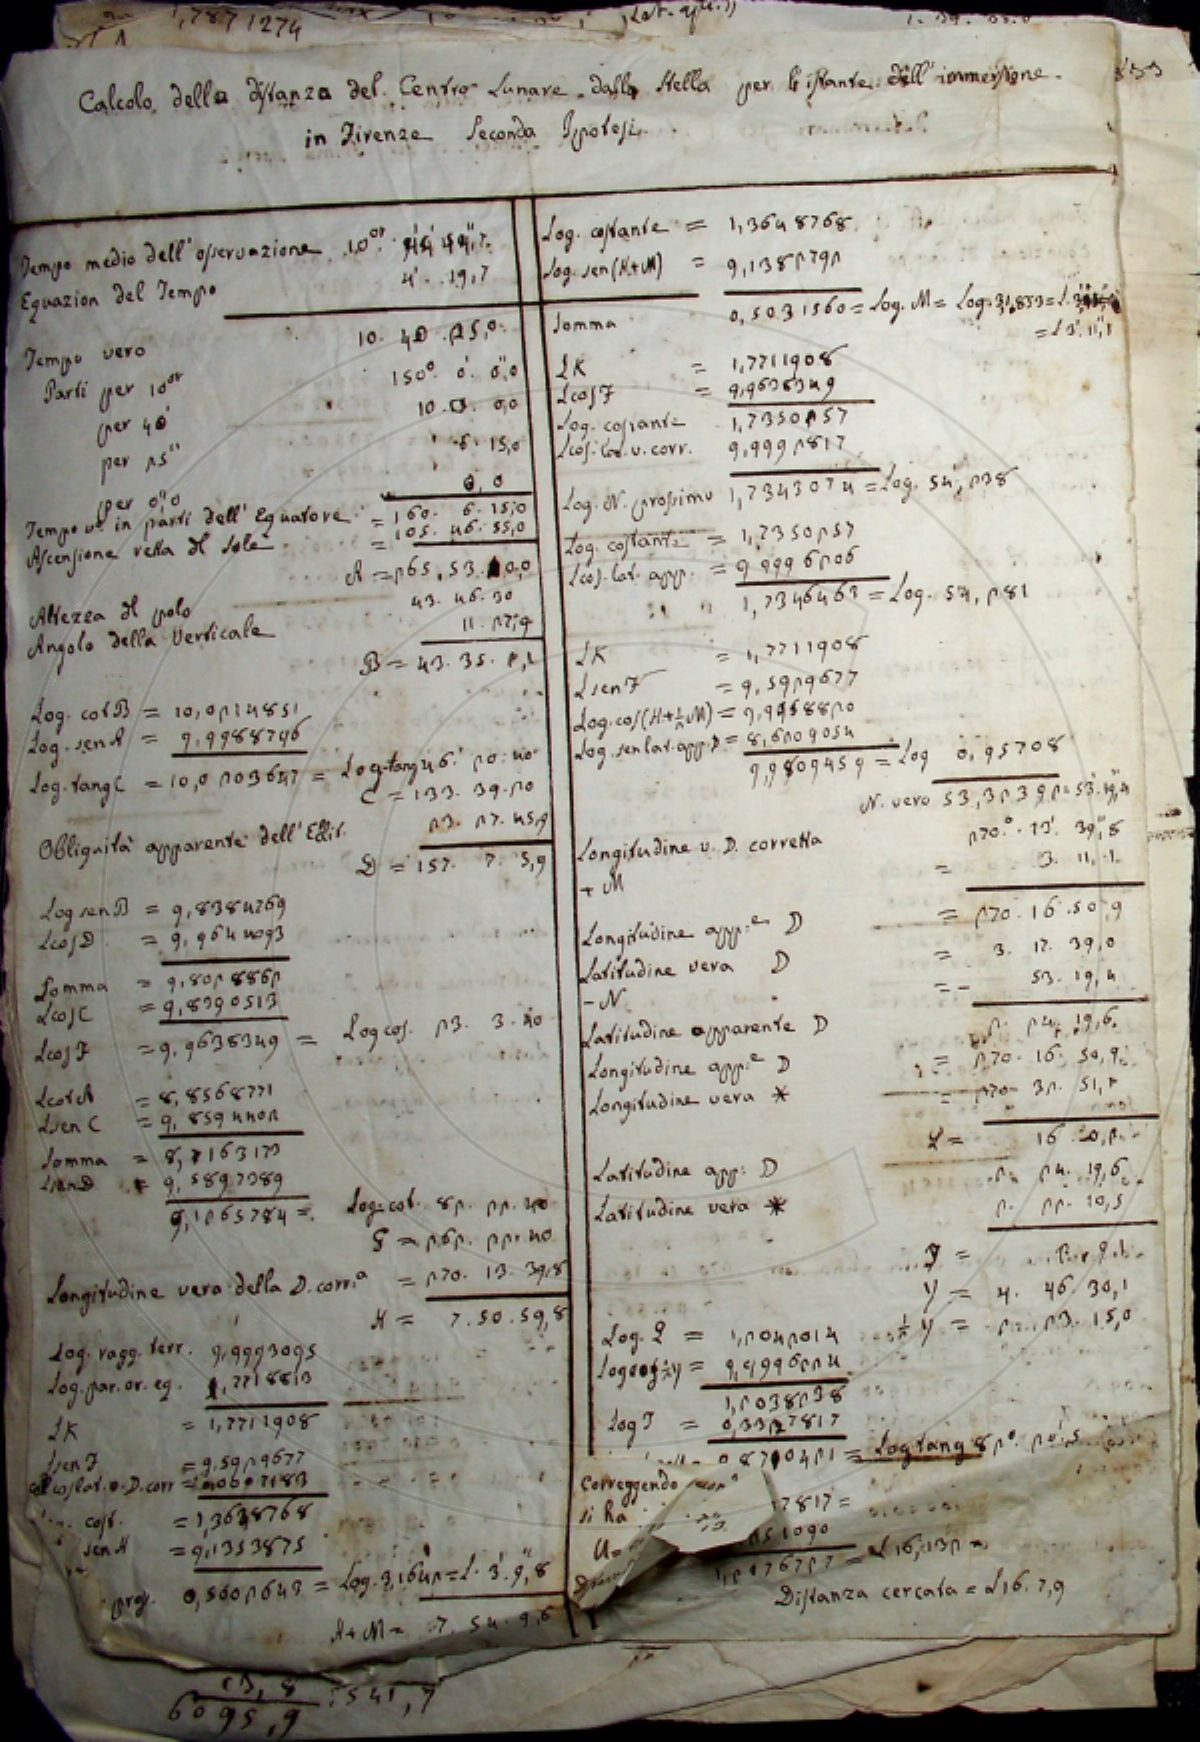 1,7871274
Calcolo della distanza del Centro Lunare dalla Stella per l'istante dell'immersione
in Firenze Seconda Ipotesi
Tempo medio dell'osservazione 10or. 44' 44",7
Equazion del Tempo 4. 19,7
Tempo vero 10. 40. 25,0
Parti per 10or 150°. 0'. 0",0
per 40' 10. 0. 0,0
per 25" 6. 15,0
per 0",0 0,0
Tempo v° in parti dell'Equatore = 160. 6. 15,0
Ascensione retta del Sole = 105. 46. 55,0
A = 265. 53. 10,0
Altezza del polo 43. 46. 30
Angolo della Verticale 11. 27,9
B = 43. 35. 2,1
Log. cot B = 10,0214851
Log. sen A = 9,9988796
Log. tang C = 10,0203647 = Log. tang 46. 20. 40
C = 133. 39. 20
Obliquità apparente dell'Eclit. 23. 27. 45,9
D = 157. 7. 5,9
Log sen B = 9,8384769
L cos D = 9,9644093
Somma = 9,8028862
L cos C = 9,8390513
L cos F = 9,9638349 = Log cos. 23. 3. 40
L cot A = 8,8568771
L sen C = 9,8594402
Somma = 8,7163173
L sen D = 9,5897389
9,1265784 = Log. cot. 82. 22. 40
G = 262. 22. 40
Longitudine vera della D. corr.a = 270. 13. 39,8
H = 7. 50. 59,8
Log. ragg. terr. 9,9993095
Log. par. or. eq. 1,7718813
LK = 1,7711908
L sen F = 9,5929677
= 1,3648768
sen H = 9,1353875
0,5002643 = Log. 3,1642 = L. 3'. 9",8
H + M = 7. 54. 9,6
Log. costante = 1,3648768
Log. sen (H+M) = 9,1382792
Somma 0,5031560 = Log. M = Log.
= L 3'. 11",1
LK = 1,7711908
L cos F = 9,9638349
Log. costante 1,7350257
L cos. lat. v. corr. 9,9992817
Log. N. prossimo 1,7343074 = Log. 54,238
Log. costante = 1,7350257
L cos. lat. app. = 9,9996206
1,7346463 = Log. 54,281
LK = 1,7711908
L sen F = 9,5929677
Log. cos (H+½M) = 9,9958820
Log. sen lat. app. D = 8,6209054
9,9809459 = Log 0,95708
N. vero 53,32392 = 53'. 19",4
Longitudine v. D. corretta 270°. 13'. 39",8
+ M = 3. 11,1
Longitudine app.e D = 270. 16. 50,9
Latitudine vera D = 3. 17. 39,0
- N = - 53. 19,4
Latitudine apparente D 2. 24. 19,6
Longitudine app.e D = 270. 16. 50,9
Longitudine vera * = 270. 32. 51,1
L = 16. 0,2
Latitudine app: D 2. 24. 19,6
Latitudine vera * 2. 22. 10,5
Y = 4. 46. 30,1
½ Y = 2. 23. 15,0
Log. L = 1,2042014
Log cos ½ y = 9,9996224
1,2038238
Log I = 0,3327817
0,8710421 = Log tang 82°. 20',5
Correggendo
si ha 7817 =
1,2076727 = L 16,132
Distanza cercata = L 16. 7,9
13,8
6095,9
:541,7